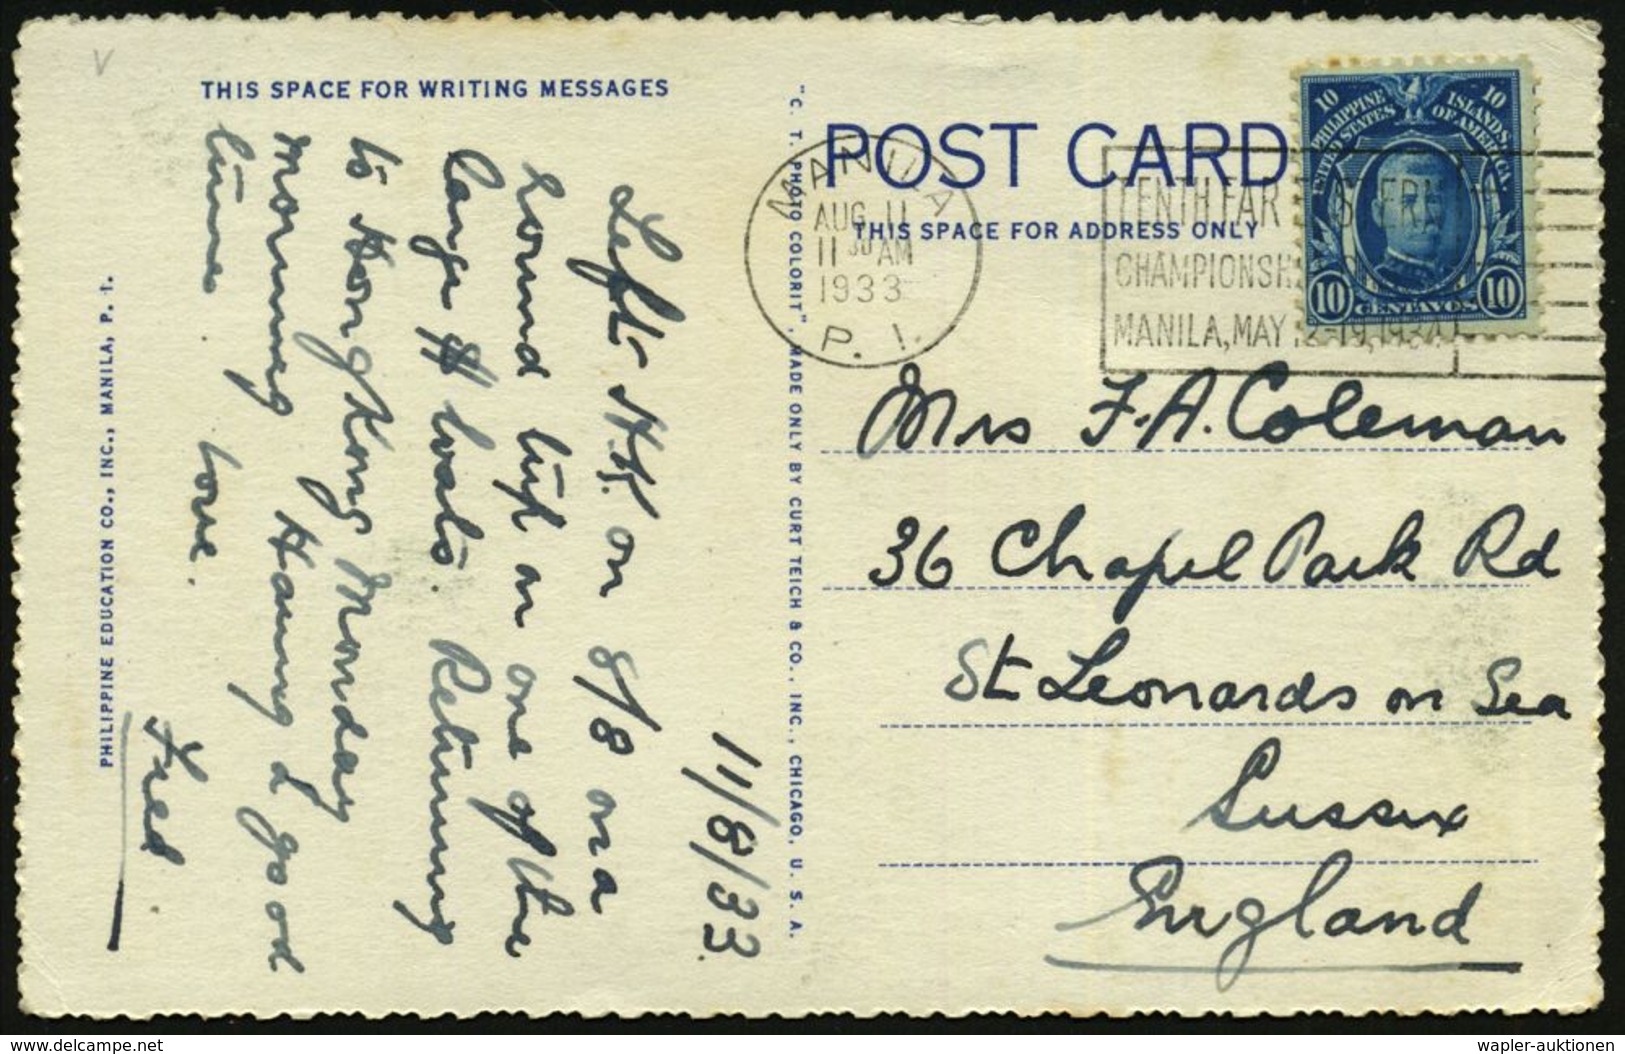 THIS SPACE FOR WRITING MESSAGES
11/8/33.
Left H.K. on 8/8 on a
round trip on one of the
large $ boats. Returning
to Hong Kong Monday
morning Having a good
time. Love.
Fred.
PHILIPPINE EDUCATION CO., INC., MANILA, P. I.
"C. T. PHOTO COLORIT", MADE ONLY BY CURT TEICH & CO., INC., CHICAGO, U. S. A.
POST CARD
THIS SPACE FOR ADDRESS ONLY
MANILA
AUG 11
11 30 AM
1933
P. I.
TENTH FAR EASTERN
CHAMPIONSHIP
MANILA, MAY 12-19, 1934
10 10
PHILIPPINE ISLANDS
UNITED STATES OF AMERICA
10 CENTAVOS 10
Mrs F. A. Coleman
36 Chapel Park Rd
St Leonards on Sea
Sussex
England
www.delcampe.net
wapler-auktionen